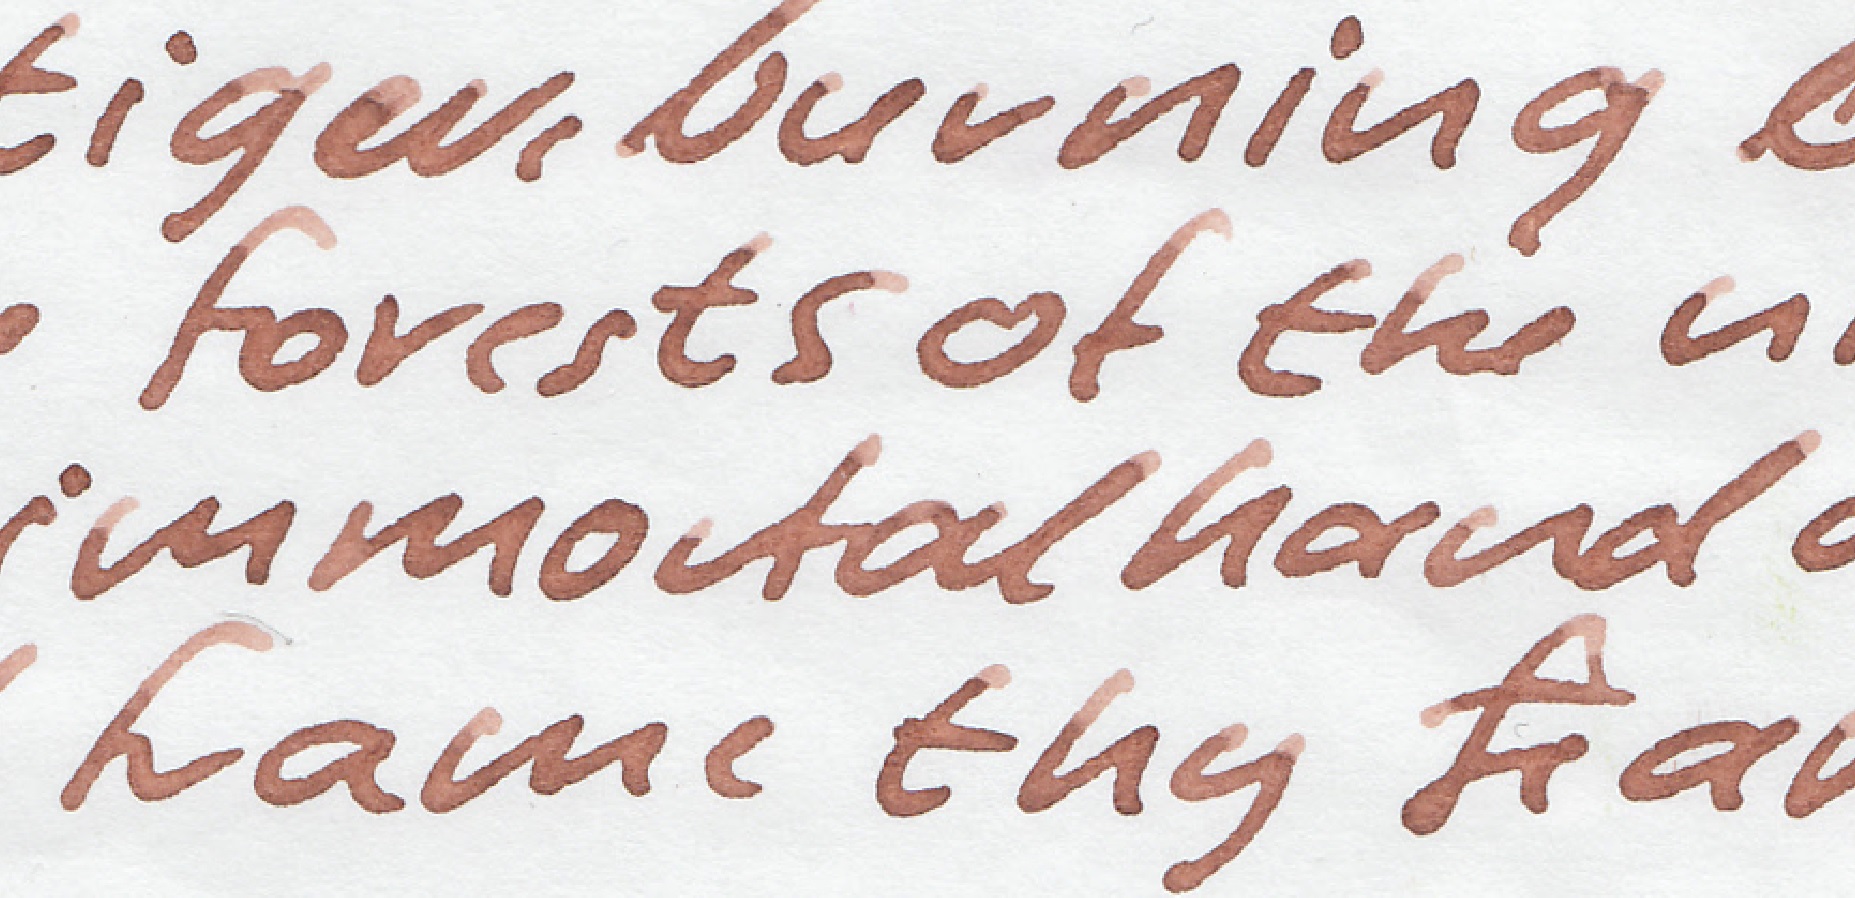 tiger, burning
forests of the
immortal hand
frame thy